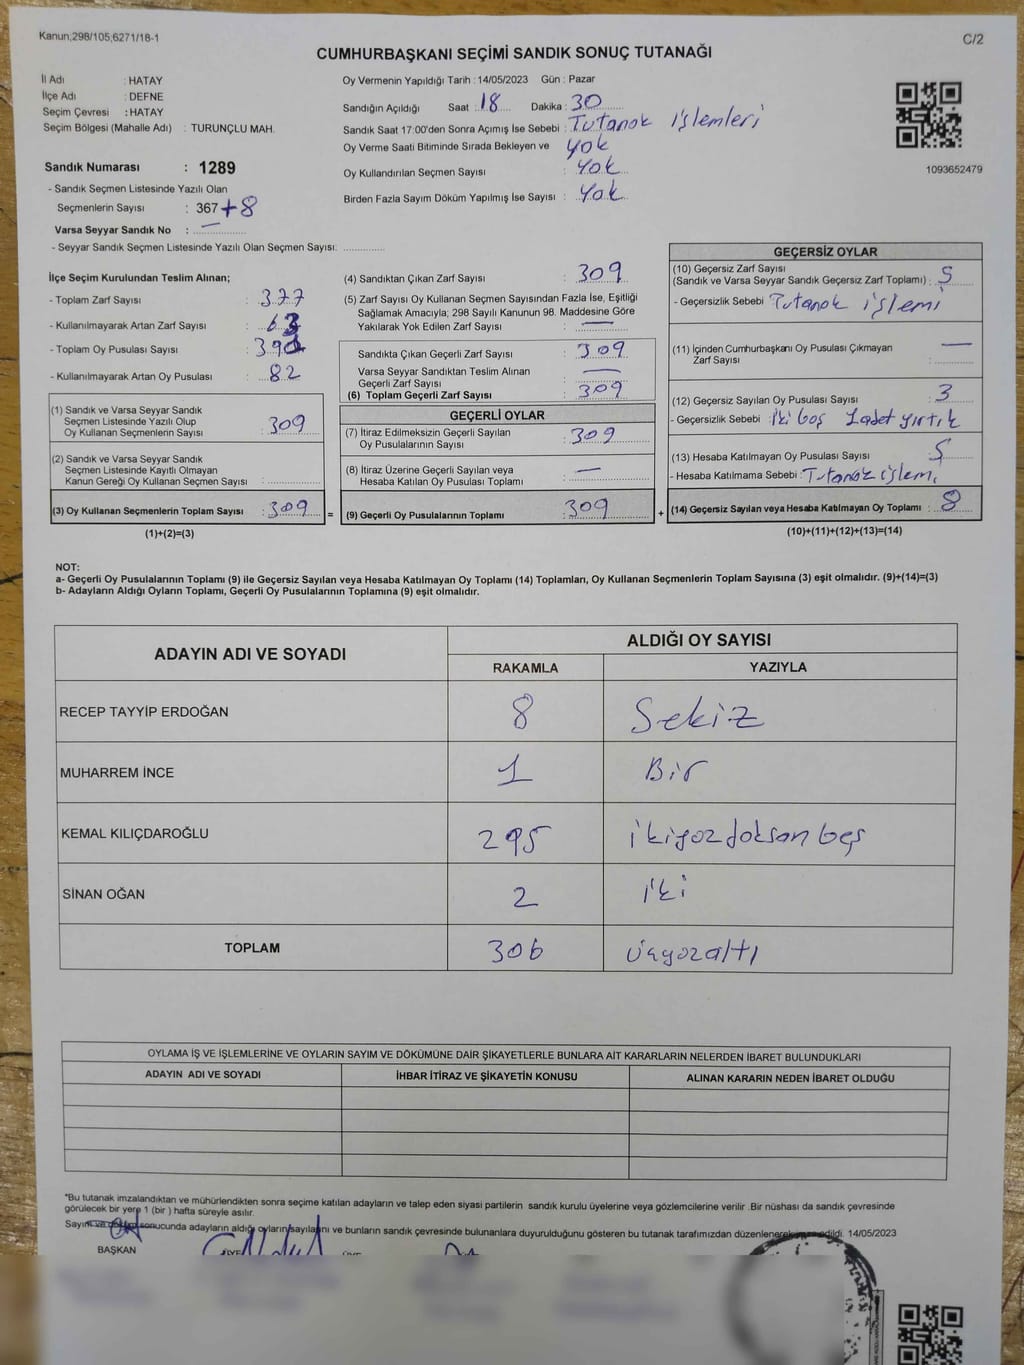 Kanun;298/105;6271/18-1
C/2
CUMHURBAŞKANI SEÇİMİ SANDIK SONUÇ TUTANAĞI
İl Adı : HATAY
İlçe Adı : DEFNE
Seçim Çevresi : HATAY
Seçim Bölgesi (Mahalle Adı) : TURUNÇLU MAH.
Oy Vermenin Yapıldığı Tarih : 14/05/2023 Gün : Pazar
Sandığın Açıldığı Saat : 18 Dakika : 30
Sandık Saat 17:00'den Sonra Açımış İse Sebebi : Tutanak işlemleri
Oy Verme Saati Bitiminde Sırada Bekleyen ve yok
Oy Kullandırılan Seçmen Sayısı : yok
Birden Fazla Sayım Döküm Yapılmış İse Sayısı : yok
1093652479
Sandık Numarası : 1289
- Sandık Seçmen Listesinde Yazılı Olan
Seçmenlerin Sayısı : 367 +8
Varsa Seyyar Sandık No : —
- Seyyar Sandık Seçmen Listesinde Yazılı Olan Seçmen Sayısı:
İlçe Seçim Kurulundan Teslim Alınan;
- Toplam Zarf Sayısı : 377
- Kullanılmayarak Artan Zarf Sayısı : 63
- Toplam Oy Pusulası Sayısı :
- Kullanılmayarak Artan Oy Pusulası : 82
(1) Sandık ve Varsa Seyyar Sandık
Seçmen Listesinde Yazılı Olup
Oy Kullanan Seçmenlerin Sayısı : 309
(2) Sandık ve Varsa Seyyar Sandık
Seçmen Listesinde Kayıtlı Olmayan
Kanun Gereği Oy Kullanan Seçmen Sayısı :
(3) Oy Kullanan Seçmenlerin Toplam Sayısı : 309
=
(1)+(2)=(3)
(4) Sandıktan Çıkan Zarf Sayısı : 309
(5) Zarf Sayısı Oy Kullanan Seçmen Sayısından Fazla İse, Eşitliği
Sağlamak Amacıyla; 298 Sayılı Kanunun 98. Maddesine Göre
Yakılarak Yok Edilen Zarf Sayısı : —
Sandıkta Çıkan Geçerli Zarf Sayısı : 309
Varsa Seyyar Sandıktan Teslim Alınan
Geçerli Zarf Sayısı : —
(6) Toplam Geçerli Zarf Sayısı : 309
GEÇERLİ OYLAR
(7) İtiraz Edilmeksizin Geçerli Sayılan
Oy Pusulalarının Sayısı : 309
(8) İtiraz Üzerine Geçerli Sayılan veya
Hesaba Katılan Oy Pusulası Toplamı : —
(9) Geçerli Oy Pusulalarının Toplamı : 309
+
GEÇERSİZ OYLAR
(10) Geçersiz Zarf Sayısı
(Sandık ve Varsa Seyyar Sandık Geçersiz Zarf Toplamı) : 5
- Geçersizlik Sebebi : Tutanak işlemi
(11) İçinden Cumhurbaşkanı Oy Pusulası Çıkmayan —
Zarf Sayısı :
(12) Geçersiz Sayılan Oy Pusulası Sayısı : 3
- Geçersizlik Sebebi : iki boş 1 adet yırtık
(13) Hesaba Katılmayan Oy Pusulası Sayısı : 5
- Hesaba Katılmama Sebebi : Tutanak işlemi
(14) Geçersiz Sayılan veya Hesaba Katılmayan Oy Toplamı : 8
(10)+(11)+(12)+(13)=(14)
NOT:
a- Geçerli Oy Pusulalarının Toplamı (9) ile Geçersiz Sayılan veya Hesaba Katılmayan Oy Toplamı (14) Toplamları, Oy Kullanan Seçmenlerin Toplam Sayısına (3) eşit olmalıdır. (9)+(14)=(3)
b- Adayların Aldığı Oyların Toplamı, Geçerli Oy Pusulalarının Toplamına (9) eşit olmalıdır.
ADAYIN ADI VE SOYADI
ALDIĞI OY SAYISI
RAKAMLA YAZIYLA
RECEP TAYYİP ERDOĞAN 8 Sekiz
MUHARREM İNCE 1 Bir
KEMAL KILIÇDAROĞLU 295 ikiyozdoksan beş
SİNAN OĞAN 2 iki
TOPLAM 306 üçyozaltı
OYLAMA İŞ VE İŞLEMLERİNE VE OYLARIN SAYIM VE DÖKÜMÜNE DAİR ŞİKAYETLERLE BUNLARA AİT KARARLARIN NELERDEN İBARET BULUNDUKLARI
ADAYIN ADI VE SOYADI İHBAR İTİRAZ VE ŞİKAYETİN KONUSU ALINAN KARARIN NEDEN İBARET OLDUĞU
*Bu tutanak imzalandıktan ve mühürlendikten sonra seçime katılan adayların ve talep eden siyasi partilerin sandık kurulu üyelerine veya gözlemcilerine verilir .Bir nüshası da sandık çevresinde
görülecek bir yere 1 (bir ) hafta süreyle asılır.
Sayım ve döküm sonucunda adayların aldığı oyların sayılarını ve bunların sandık çevresinde bulunanlara duyurulduğunu gösteren bu tutanak tarafımızdan düzenlenerek edildi. 14/05/2023
BAŞKAN ÜYE ÜYE